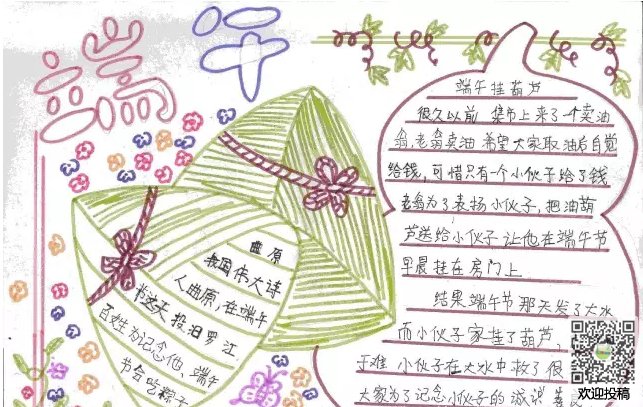 端午
端午挂葫芦
很久以前 集市上来了一个卖油
翁,老翁卖油 希望大家取油后自觉
给钱,可惜只有一个小伙子给了钱
老翁为了表扬小伙子,把油葫
芦送给小伙子 让他在端午节
早晨挂在房门上
结果端午节那天发了大水
而小伙子家挂了葫芦,
于难 小伙子在大水中救了很
大家为了记念小伙子的诚
曲原
我国伟大诗
人曲原,在端午
节这天投汨罗江
百姓为记念他,端午
节会吃粽子
欢迎投稿